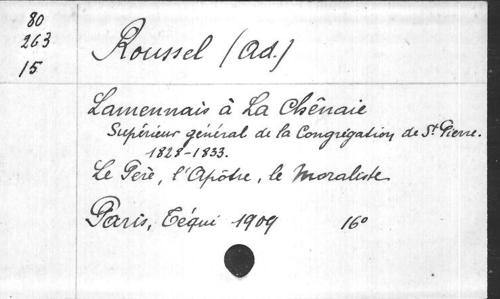 80
263
15
Roussel (Ad.)
Lamennais à La Chênaie
Supérieur général de la Congrégation de St Pierre.
1828-1833.
Le Père, l'Apôtre, le Moraliste
Paris, Téqui 1909 16°